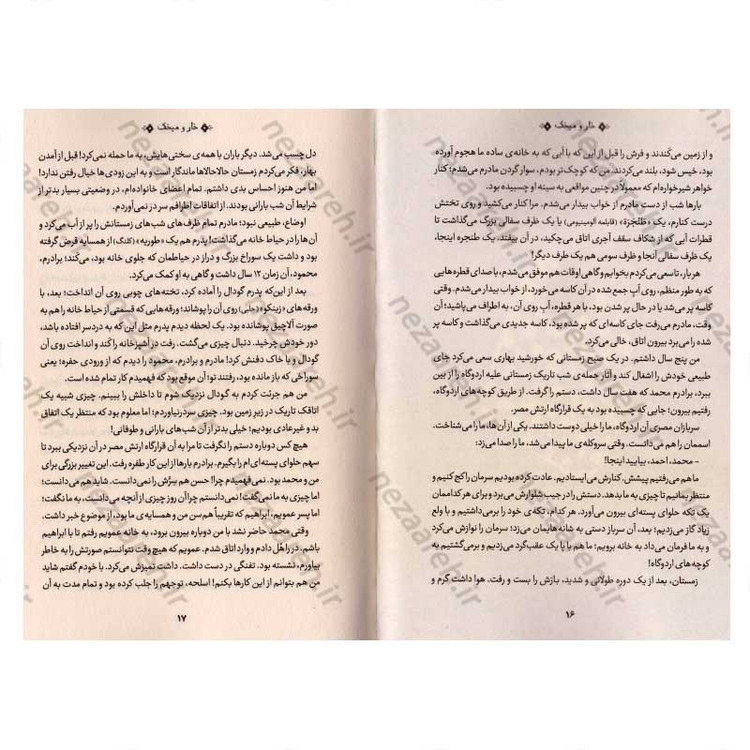 خار و میخک
و از زمین می‌کَندند و فرش را قبل از این که با آبی که به خانه‌ی ساده ما هجوم آورده
بود، خیس شود، بلند می‌کردند. من که کوچک‌تر بودم، سوار گردن مادرم می‌شدم؛ کنار
خواهر شیرخواره‌ام که معمولاً در چنین مواقعی به سینه او چسبیده بود.
بارها شب از دست مادرم از خواب بیدار می‌شدم. مرا کنار می‌کشید و روی تختش
درست کنارم، یک «طَنجَرَة» (قابلمه آلومینیومی) یا یک ظرف سفالی بزرگ می‌گذاشت تا
قطرات آبی که از شکاف سقف آجری اتاق می‌چکید، در آن بیفتد. یک طنجره اینجا،
یک ظرف سفالی آنجا و ظرف سومی هم یک طرف دیگر!
هربار، تا سعی می‌کردم بخوابم و گاهی اوقات هم موفق می‌شدم، با صدای قطره‌هایی
که به طور منظم، روی آبِ جمع شده در آن کاسه می‌خورد، از خواب بیدار می‌شدم. اگر
کاسه پر می‌شد یا در حال پر شدن بود، با هر قطره، آبِ روی آن، به اطراف می‌پاشید؛ آن
وقت، مادرم می‌رفت جای کاسه‌ای که پر شده بود، کاسه جدیدی می‌گذاشت و کاسه پر
شده را می‌برد بیرون اتاق، خالی می‌کرد.
من پنج سال داشتم. در یک صبح زمستانی که خورشید بهاری سعی می‌کرد جای
طبیعی خودش را اشغال کند و آثار حمله‌ی شب تاریک زمستانی علیه اردوگاه را از بین
ببرد، برادرم محمد که هفت سال داشت، دستم را گرفت.
رفتیم بیرون؛ جایی که چسبیده بود به یک قرارگاه ارتش مصر.
سربازان مصری آن اردوگاه، ما را خیلی دوست داشتند. یکی از آن‌ها، ما را می‌شناخت.
اسممان را هم می‌دانست. وقتی سروکله‌ی ما پیدا می‌شد، ما را صدا می‌زد:
- محمد، احمد، بیایید اینجا!
ما هم می‌رفتیم پیشش. کنارش می‌ایستادیم. عادت کرده بودیم سرمان را کج کنیم و
منتظر بمانیم تا چیزی به ما بدهد. دستش را در جیب شلوارش می‌برد و برای هر کداممان
یک تکه حلوای پسته‌ای بیرون می‌آورد. هر کدام، تکه‌ی خود را برمی‌داشتیم و با ولع
زیاد گاز می‌زدیم؛ بعد، آن سرباز دستی به شانه‌هایمان می‌زد؛ سرمان را نوازش می‌کرد
و به ما فرمان می‌داد به خانه برویم؛ ما هم با پا یک عقب‌گرد می‌زدیم و برمی‌گشتیم به
کوچه‌های اردوگاه!
زمستان، بعد از یک دوره طولانی و شدید، بارَش را بست و رفت. هوا داشت گرم و
۱۶
خار و میخک
دل چسب می‌شد. دیگر باران با همه‌ی سختی‌هایش، به ما حمله نمی‌کرد! قبل از آمدن
بهار، فکر می‌کردم زمستان حالاحالاها ماندگار است و به این زودی‌ها خیال رفتن ندارد!
اما من هنوز احساس بدی داشتم. تمام اعضای خانواده‌ام، در وضعیتی بسیار بدتر از
شرایط آن شب بارانی بودند. از اتفاقات اطرافم سر در نمی‌آوردم.
اوضاع، طبیعی نبود؛ مادرم تمام ظرف‌های شب‌های زمستانش را پر از آب می‌کرد و
آن‌ها را در حیاط خانه می‌گذاشت! پدرم هم یک «طوریه» (کلنگ) از همسایه قرض گرفته
بود و داشت یک سوراخ بزرگ و دراز در حیاطمان که جلوی خانه بود، می‌کند؛ برادرم،
محمود، آن زمان ۱۲ سال داشت و گاهی به او کمک می‌کرد.
بعد از این که پدرم گودال را آماده کرد، تخته‌های چوبی روی آن انداخت؛ بعد، با
ورقه‌های «زینکو» (حلبی) روی آن را پوشاند؛ ورقه‌هایی که قسمتی از حیاط خانه را هم به
صورت آلاچیق پوشانده بود. یک لحظه دیدم پدرم مثل این که به دردسر افتاده باشد،
دور خودش چرخید. دنبال چیزی می‌گشت. رفت در آشپزخانه را کَند و انداختش روی
گودال و با خاک دفنش کرد! مادرم و برادرم، محمود را دیدم که از ورودی حفره؛ یعنی
سوراخی که باز مانده بود، رفتند تو؛ آن موقع بود که فهمیدم کار تمام شده است.
من هم جرئت کردم به گودال نزدیک شوم تا داخلش را ببینم. چیزی شبیه یک
اتاقک تاریک در زیرِ زمین بود. چیزی سردرنیاوردم! اما معلوم بود که منتظر یک اتفاق
بد و غیرعادی بودیم؛ خیلی بدتر از آن شب‌های بارانی و طوفانی!
هیچ کس دوباره دستم را نگرفت تا مرا به آن قرارگاه ارتش مصر در نزدیکی ببرد تا
سهم حلوای پسته‌ای ام را بگیرم. برادرم بارها از این کار طفره رفت. این تغییر بزرگی برای
من و محمد بود. نمی‌فهمیدم چرا! حسن هم سِرَّش را نمی‌دانست. شاید هم می‌دانست؛
اما چیزی به ما نمی‌گفت! نمی‌دانستم چرا آن روز چیزی از آنچه که می‌دانست، به ما نگفت؛
اما پسر عمویم، ابراهیم که تقریباً هم‌سن من و همسایه‌ی ما بود، از موضوع خبر داشت.
وقتی محمد حاضر نشد با من دوباره بیرون برود، به خانه عمویم رفتم تا با ابراهیم
باشم. در را هُل دادم و وارد اتاق شدم. عمویم که هیچ وقت نتوانستم صورتش را به خاطر
بیاورم، نشسته بود. تفنگی در دست داشت. داشت تمیزش می‌کرد. با خودم گفتم شاید
من هم بتوانم از این کارها بکنم! اسلحه، توجهم را جلب کرده بود و تمام مدت به آن
۱۷
nezaareh.ir